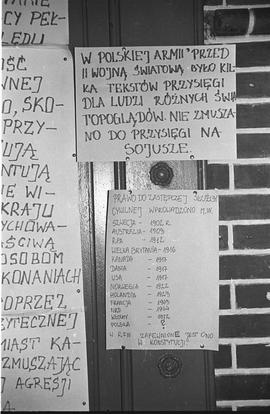 ANIE
CY PEŁ-
LĘDU
OŚĆ
WNEJ
O, SKO-
PRZY-
TUJĄ
ANTUJĄ
E WI-
KRAJU
YCHOWA-
ŚCIWĄ
OSOBOM
KONANIACH
POPRZEZ
YTECZNEJ
MIAST KA-
ZMUSZAJĄC
AGRESJI
W POLSKIEJ ARMII PRZED
II WOJNĄ ŚWIATOWĄ BYŁO KIL-
KA TEKSTÓW PRZYSIĘGI
DLA LUDZI RÓŻNYCH ŚWIA
TOPOGLĄDÓW. NIE ZMUSZA-
NO DO PRZYSIĘGI NA
SOJUSZE.
PRAWO DO ZASTĘPCZEJ SŁUŻBY
CYWILNEJ WPROWADZONO M.IN.
SZWECJA - 1902 R
AUSTRALIA - 1903
R.P.A - 1912
WIELKA BRYTANIA - 1916
KANADA - 1917
DANIA - 1917
USA - 1917
NORWEGIA - 1922
HOLANDIA - 1923
FRANCJA - 1963
NRD - 1964
WŁOCHY - 1972
POLSKA ?
W RFN ZAPEWNIONE JEST ONO
W KONSTYTUCJI